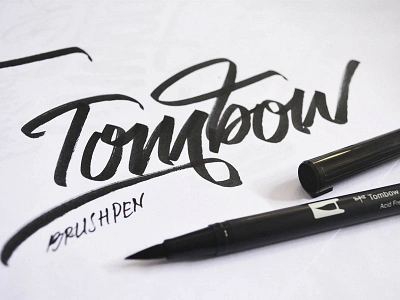 Tombow
BRUSHPEN
Tombow
Acid Fre